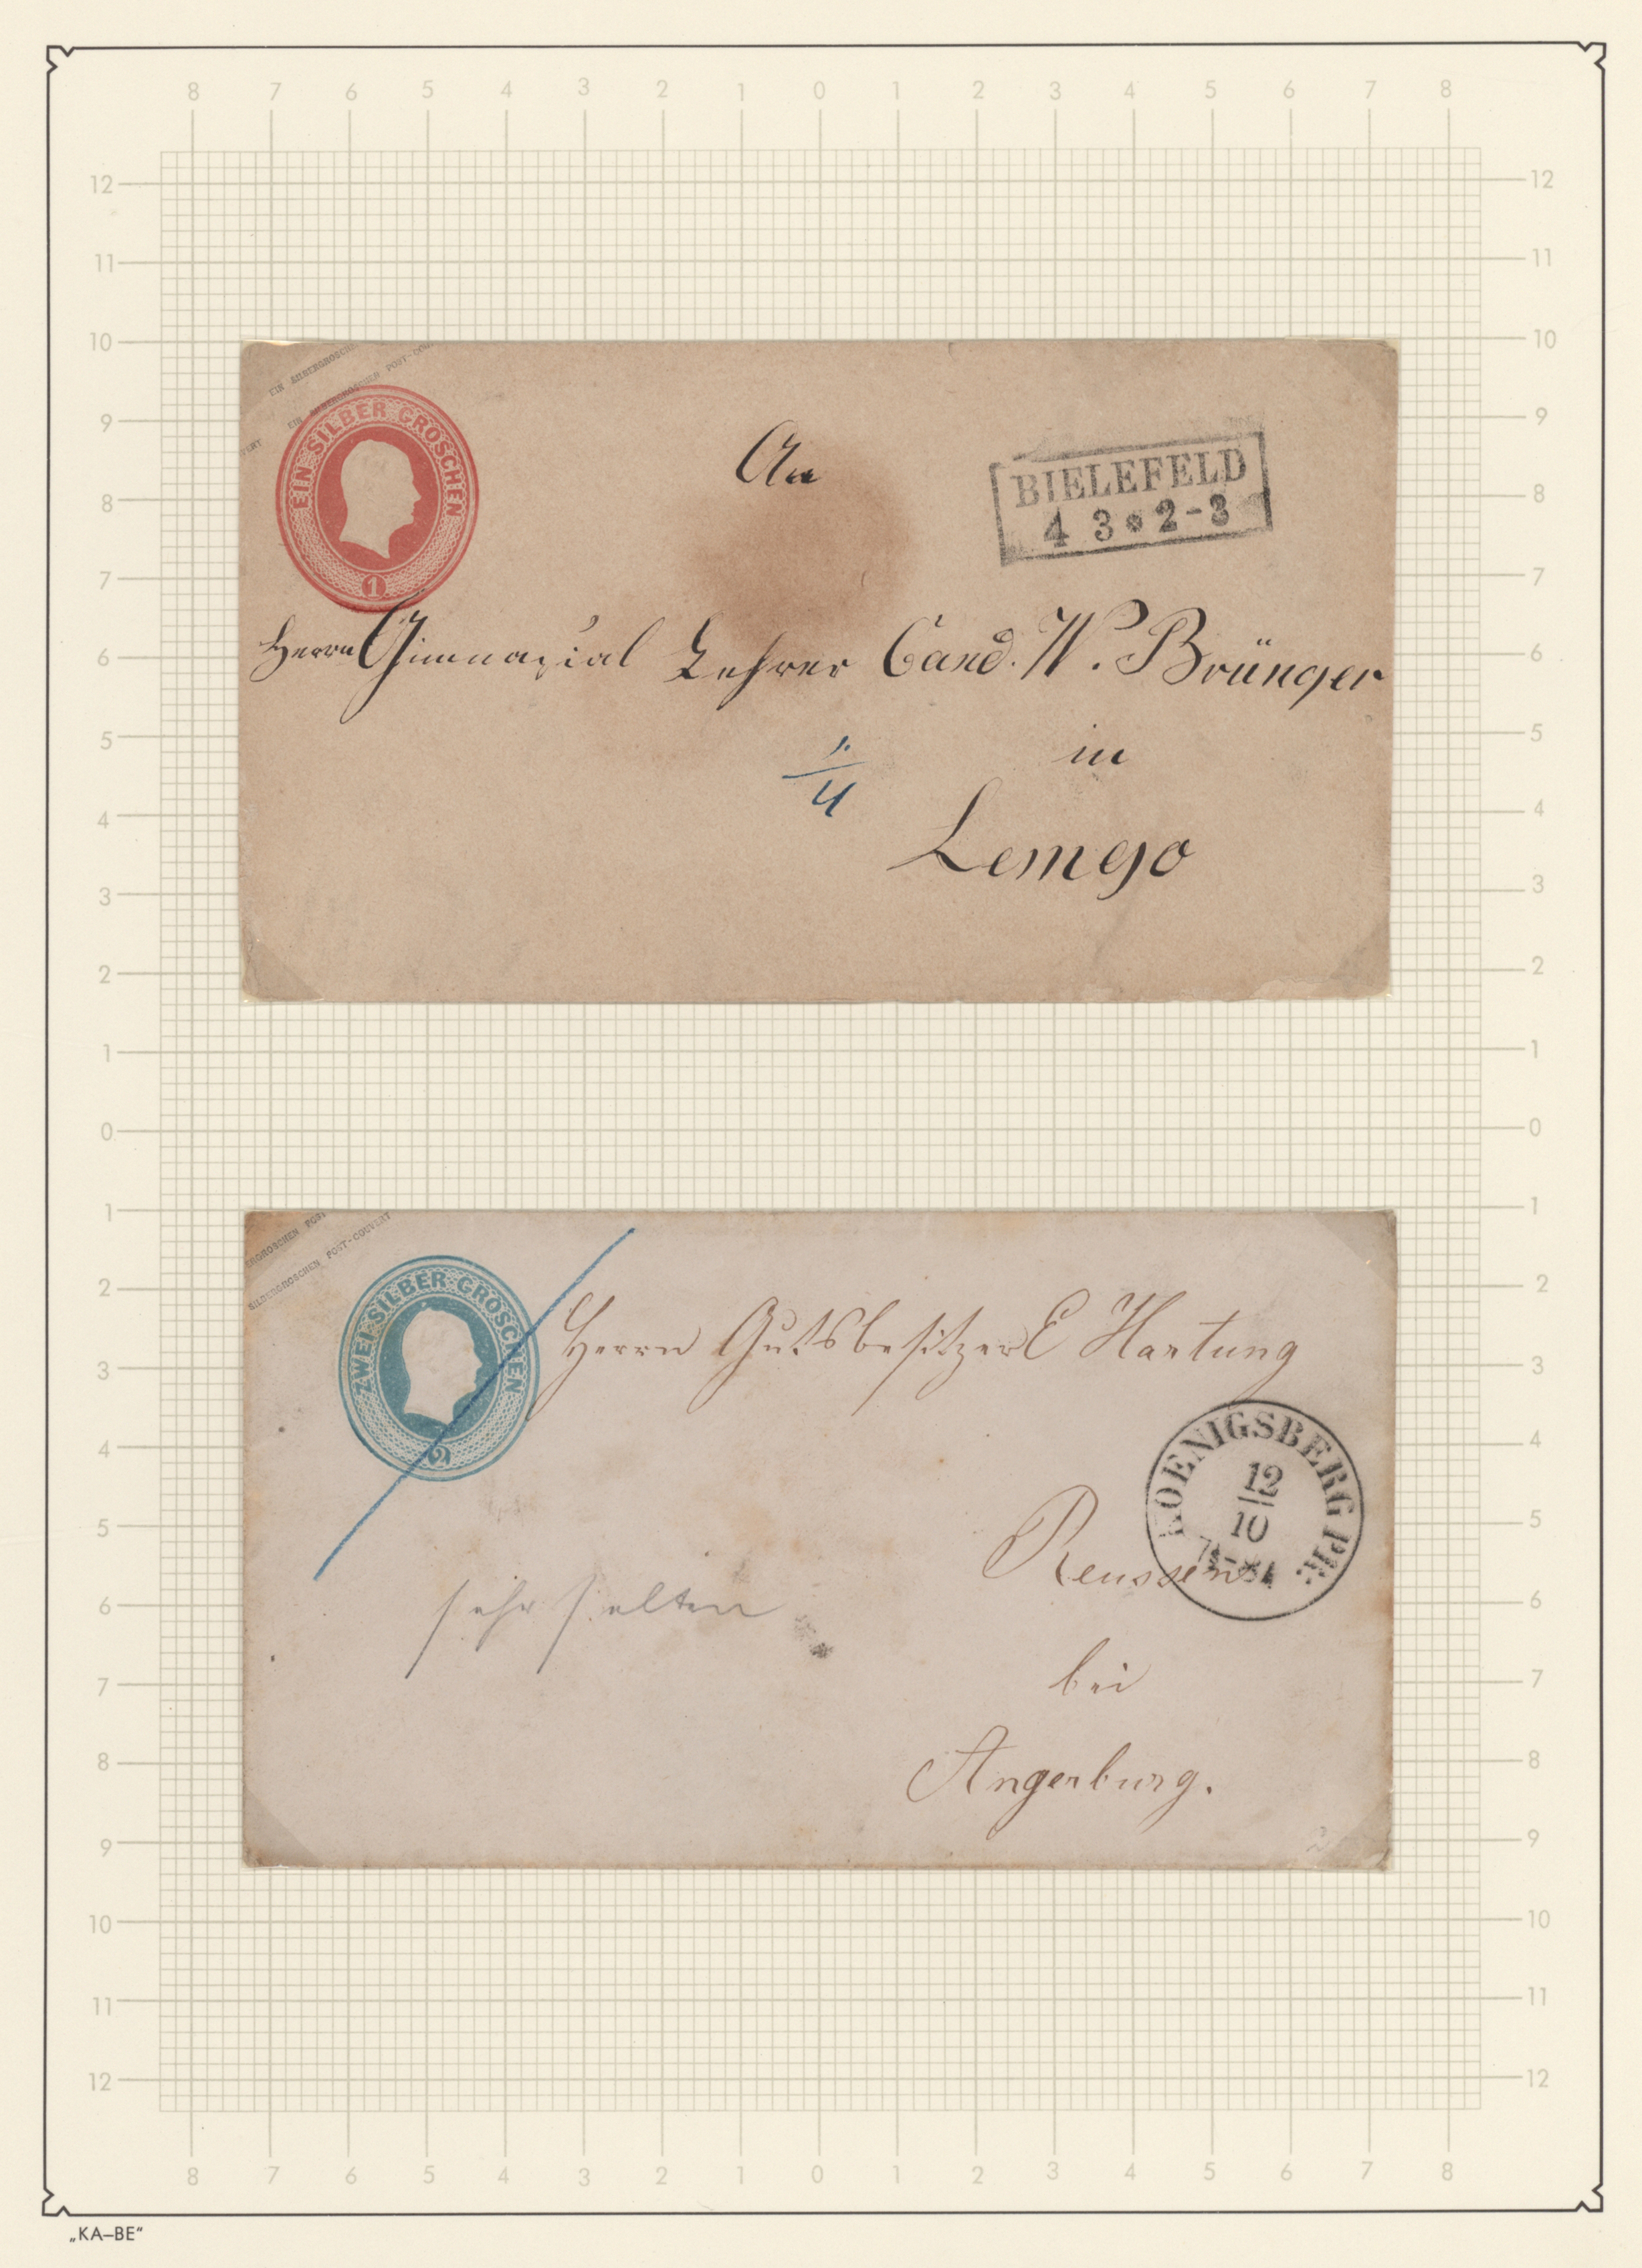 8 7 6 5 4 3 2 1 0 1 2 3 4 5 6 7 8
12 12
11 11
10 10
9 9
8 8
7 7
6 6
5 5
4 4
3 3
2 2
1 1
0 0
1 1
2 2
3 3
4 4
5 5
6 6
7 7
8 8
9 9
10 10
11 11
12 12
8 7 6 5 4 3 2 1 0 1 2 3 4 5 6 7 8
EIN SILBERGROSCH
EIN SILBERGROSCHEN POST-COU
VERT
EIN SILBER GROSCHEN
1
An
BIELEFELD
4 3 * 2-3
Herrn Gimnasial Lehrer Cand. W. Brünger
in
4
Lemgo
ERGROSCHEN POST
SILBERGROSCHEN POST-COUVERT
ZWEI SILBER GROSCHEN
2
Herrn Gutsbesitzer E Hartung
KOENIGSBERG PR:
12
10
Reussen
sehr selten
bei
Angerburg.
„KA–BE“